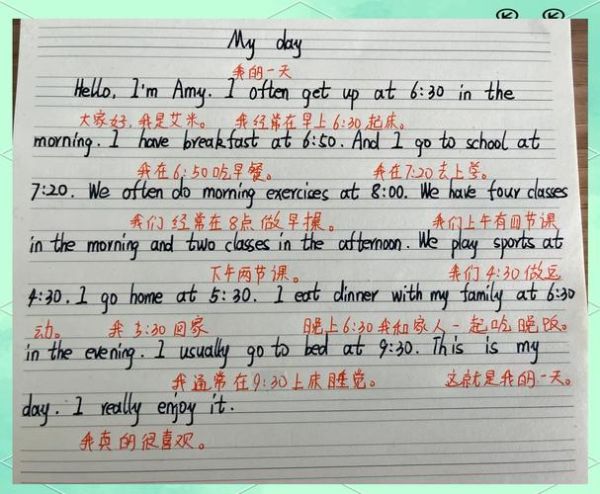 My day
我的一天
Hello, I'm Amy. I often get up at 6:30 in the
大家好,我是艾米。 我经常在早上6:30起床。
morning. I have breakfast at 6:50. And I go to school at
我在6:50吃早餐。 我在7:20去上学。
7:20. We often do morning exercises at 8:00. We have four classes
我们经常在8点做早操。 我们上午有四节课
in the morning and two classes in the afternoon. We play sports at
下午两节课。 我们4:30做运
4:30. I go home at 5:30. I eat dinner with my family at 6:30
动。 我5:30回家 晚上6:30我和家人一起吃晚饭。
in the evening. I usually go to bed at 9:30. This is my
我通常在9:30上床睡觉。 这就是我的一天。
day. I really enjoy it.
我真的很喜欢。